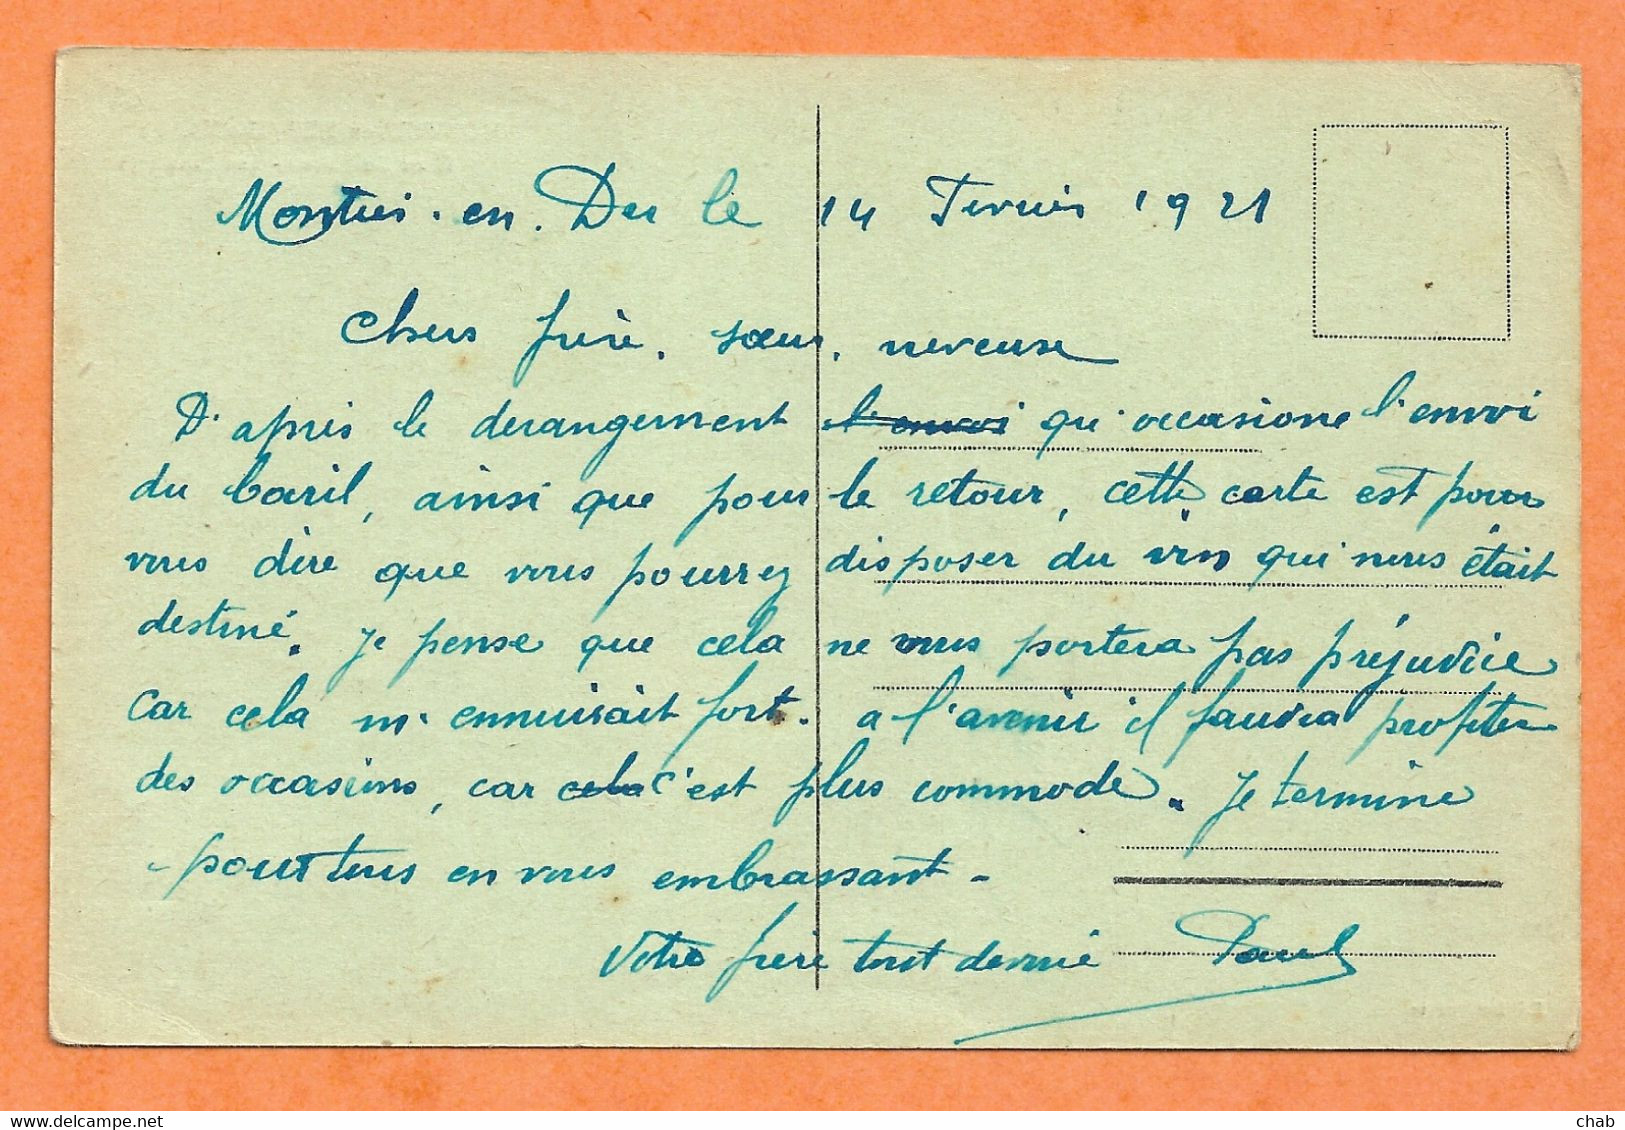 Montiers-en-Der le 14 Fevrier 1921
Chers frère, sœur, neveuse
D'après le derangement l'envoi qu'occasione l'envoi
du baril, ainsi que pour le retour, cette carte est pour
vous dire que vous pourrez disposer du vin qui nous était
destiné. Je pense que cela ne vous portera pas préjudice
car cela m'ennuisait fort. a l'avenir il faudra profiter
des occasions, car cela c'est plus commode. Je termine
pour tous en vous embrassant -
Votre frère tout devoué Paul
chab
delcampe.net